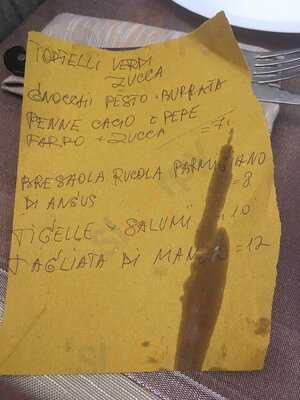 TORTELLI VERDI
ZUCCA
GNOCCHI PESTO + BURRATA
PENNE CACIO E PEPE
FARRO + ZUCCA = 7
BRESAOLA RUCOLA PARMIGIANO
DI ANGUS = 8
TIGELLE + SALUMI 10
TAGLIATA DI MANZO = 12